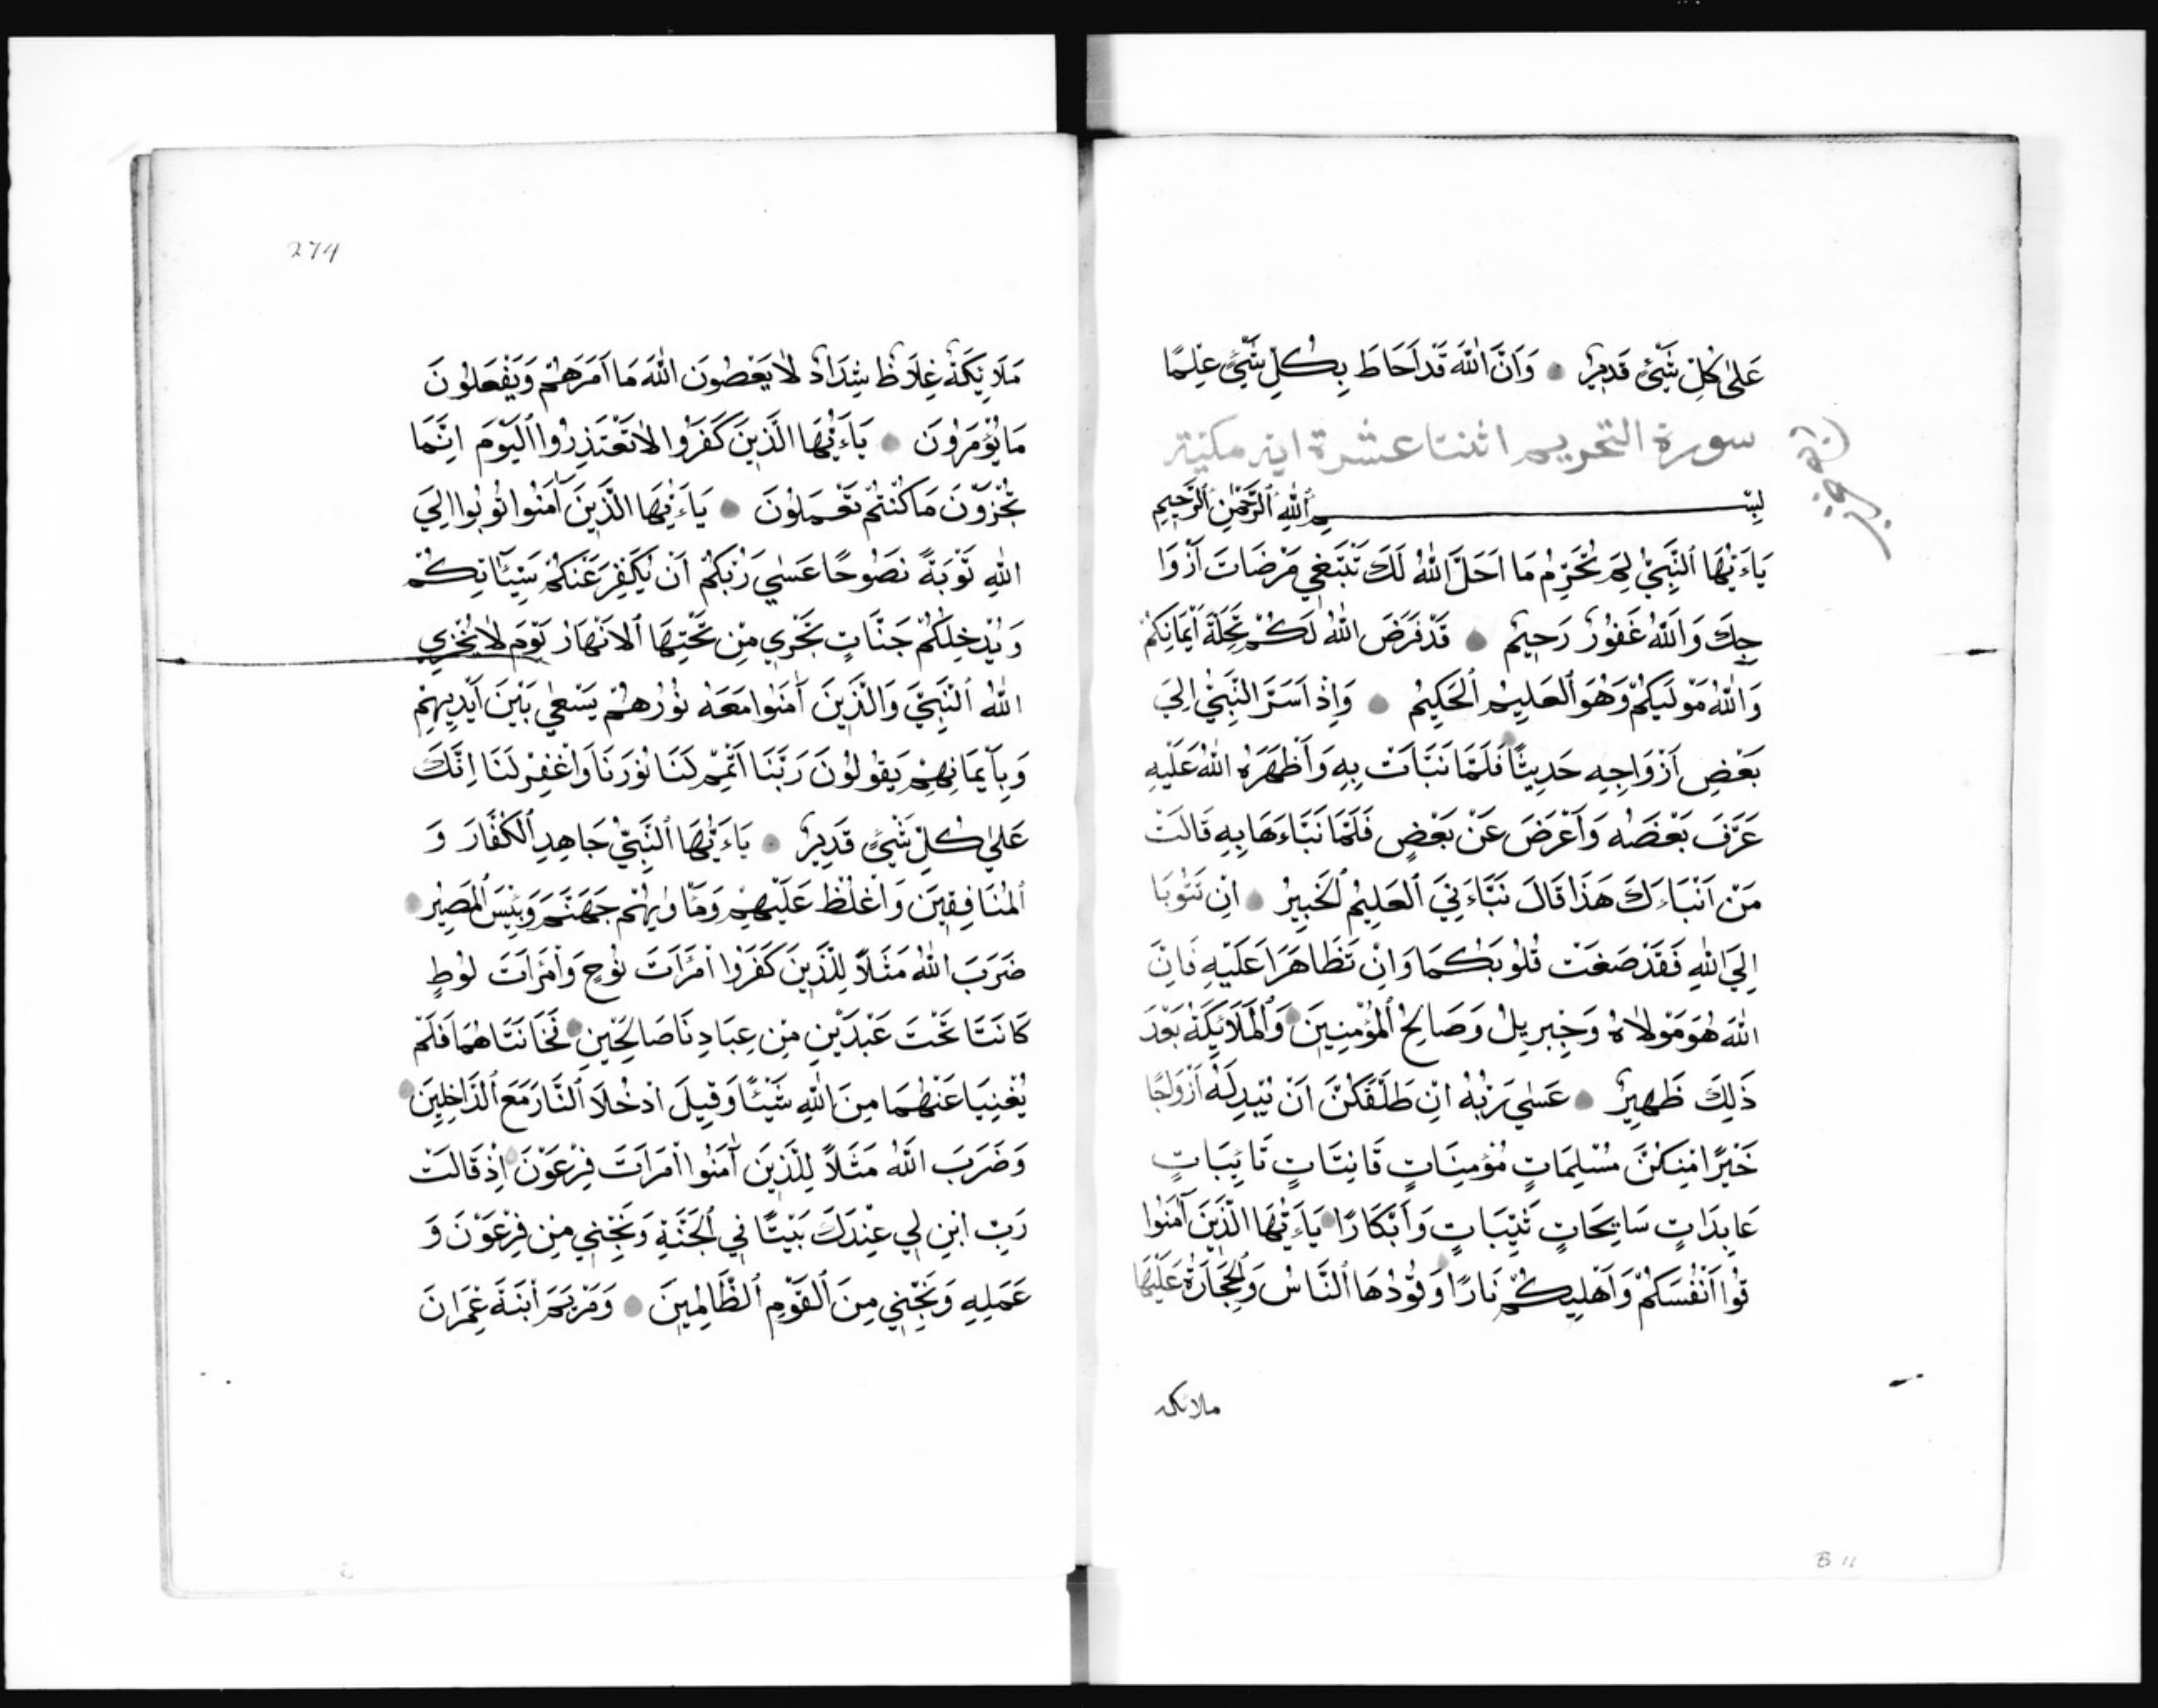 عَلَىٰ كُلِّ شَيْءٍ قَدِيرٌ ● وَاَنَّ اللهَ قَدْ اَحَاطَ بِكُلِّ شَيْءٍ عِلْمًا
سورة التحريم اثنتا عشرة اية مكية
بِسْمِ اللهِ الرَّحْمٰنِ الرَّحِيمِ
يَاءَيُّهَا النَّبِيُّ لِمَ تُحَرِّمُ مَا اَحَلَّ اللهُ لَكَ تَبْتَغِي مَرْضَاتَ اَزْوَا
جِكَ وَاللهُ غَفُورٌ رَحِيمٌ ● قَدْ فَرَضَ اللهُ لَكُمْ تَحِلَّةَ اَيْمَانِكُمْ
وَاللهُ مَوْلَيكُمْ وَهُوَ العَلِيمُ الحَكِيمُ ● وَاِذْ اَسَرَّ النَّبِيُّ اِلَي
بَعْضِ اَزْوَاجِهِ حَدِيثًا فَلَمَّا نَبَّاَتْ بِهِ وَاَظْهَرَهُ اللهُ عَلَيْهِ
عَرَّفَ بَعْضَهُ وَاَعْرَضَ عَنْ بَعْضٍ فَلَمَّا نَبَّاءَهَا بِهِ قَالَتْ
مَنْ اَنْبَاءَكَ هَذَا قَالَ نَبَّاءَنِيَ العَلِيمُ الخَبِيرُ ● اِنْ تَتُوبَا
اِلَي اللهِ فَقَدْ صَغَتْ قُلُوبُكُمَا وَاِنْ تَظَاهَرَا عَلَيْهِ فَاِنَّ
اللهَ هُوَ مَوْلَاهُ وَجِبْرِيلُ وَصَالِحُ المُؤْمِنِينَ ● وَالمَلَائِكَةُ بَعْدَ
ذَلِكَ ظَهِيرٌ ● عَسَي رَبُّهُ اِنْ طَلَّقَكُنَّ اَنْ يُبْدِلَهُ اَزْوَاجًا
خَيْرًا مِنْكُنَّ مُسْلِمَاتٍ مُؤْمِنَاتٍ قَانِتَاتٍ تَائِبَاتٍ
عَابِدَاتٍ سَايِحَاتٍ ثَيِّبَاتٍ وَاَبْكَارًا ● يَاءَيُّهَا الَّذِينَ آمَنُوا
قُوا اَنْفُسَكُمْ وَاَهْلِيكُمْ نَارًا وَقُودُهَا النَّاسُ وَالحِجَارَةُ عَلَيْهَا
ملائكه
274
مَلَايِكَةٌ غِلَاظٌ شِدَادٌ لَا يَعْصُونَ اللهَ مَا اَمَرَهُمْ وَيَفْعَلُونَ
مَا يُؤْمَرُونَ ● يَاءَيُّهَا الَّذِينَ كَفَرُوا لَا تَعْتَذِرُوا اليَوْمَ اِنَّمَا
تُجْزَوْنَ مَا كُنْتُمْ تَعْمَلُونَ ● يَاءَيُّهَا الَّذِينَ آمَنُوا تُوبُوا اِلَي
اللهِ تَوْبَةً نَصُوحًا عَسَي رَبُّكُمْ اَنْ يُكَفِّرَ عَنْكُمْ سَيِّئَاتِكُمْ
وَيُدْخِلَكُمْ جَنَّاتٍ تَجْرِي مِنْ تَحْتِهَا الاَنْهَارُ يَوْمَ لَا يُخْزِي
اللهُ النَّبِيَّ وَالَّذِينَ آمَنُوا مَعَهُ نُورُهُمْ يَسْعَي بَيْنَ اَيْدِيهِمْ
وَبِاَيْمَانِهِمْ يَقُولُونَ رَبَّنَا اَتْمِمْ لَنَا نُورَنَا وَاغْفِرْ لَنَا اِنَّكَ
عَلَي كُلِّ شَيْءٍ قَدِيرٌ ● يَاءَيُّهَا النَّبِيُّ جَاهِدِ الكُفَّارَ وَ
المُنَافِقِينَ وَاغْلُظْ عَلَيْهِمْ وَمَاْوٰيهُمْ جَهَنَّمُ وَبِئْسَ المَصِيرُ ●
ضَرَبَ اللهُ مَثَلًا لِلَّذِينَ كَفَرُوا امْرَاَتَ نُوحٍ وَامْرَاَتَ لُوطٍ
كَانَتَا تَحْتَ عَبْدَيْنِ مِنْ عِبَادِنَا صَالِحَيْنِ ● فَخَانَتَاهُمَا فَلَمْ
يُغْنِيَا عَنْهُمَا مِنَ اللهِ شَيْئًا وَقِيلَ ادْخُلَا النَّارَ مَعَ الدَّاخِلِينَ ●
وَضَرَبَ اللهُ مَثَلًا لِلَّذِينَ آمَنُوا امْرَاَتَ فِرْعَوْنَ اِذْ قَالَتْ
رَبِّ ابْنِ لِي عِنْدَكَ بَيْتًا فِي الجَنَّةِ وَنَجِّنِي مِنْ فِرْعَوْنَ وَ
عَمَلِهِ وَنَجِّنِي مِنَ القَوْمِ الظَّالِمِينَ ● وَمَرْيَمَ ابْنَةَ عِمْرَانَ